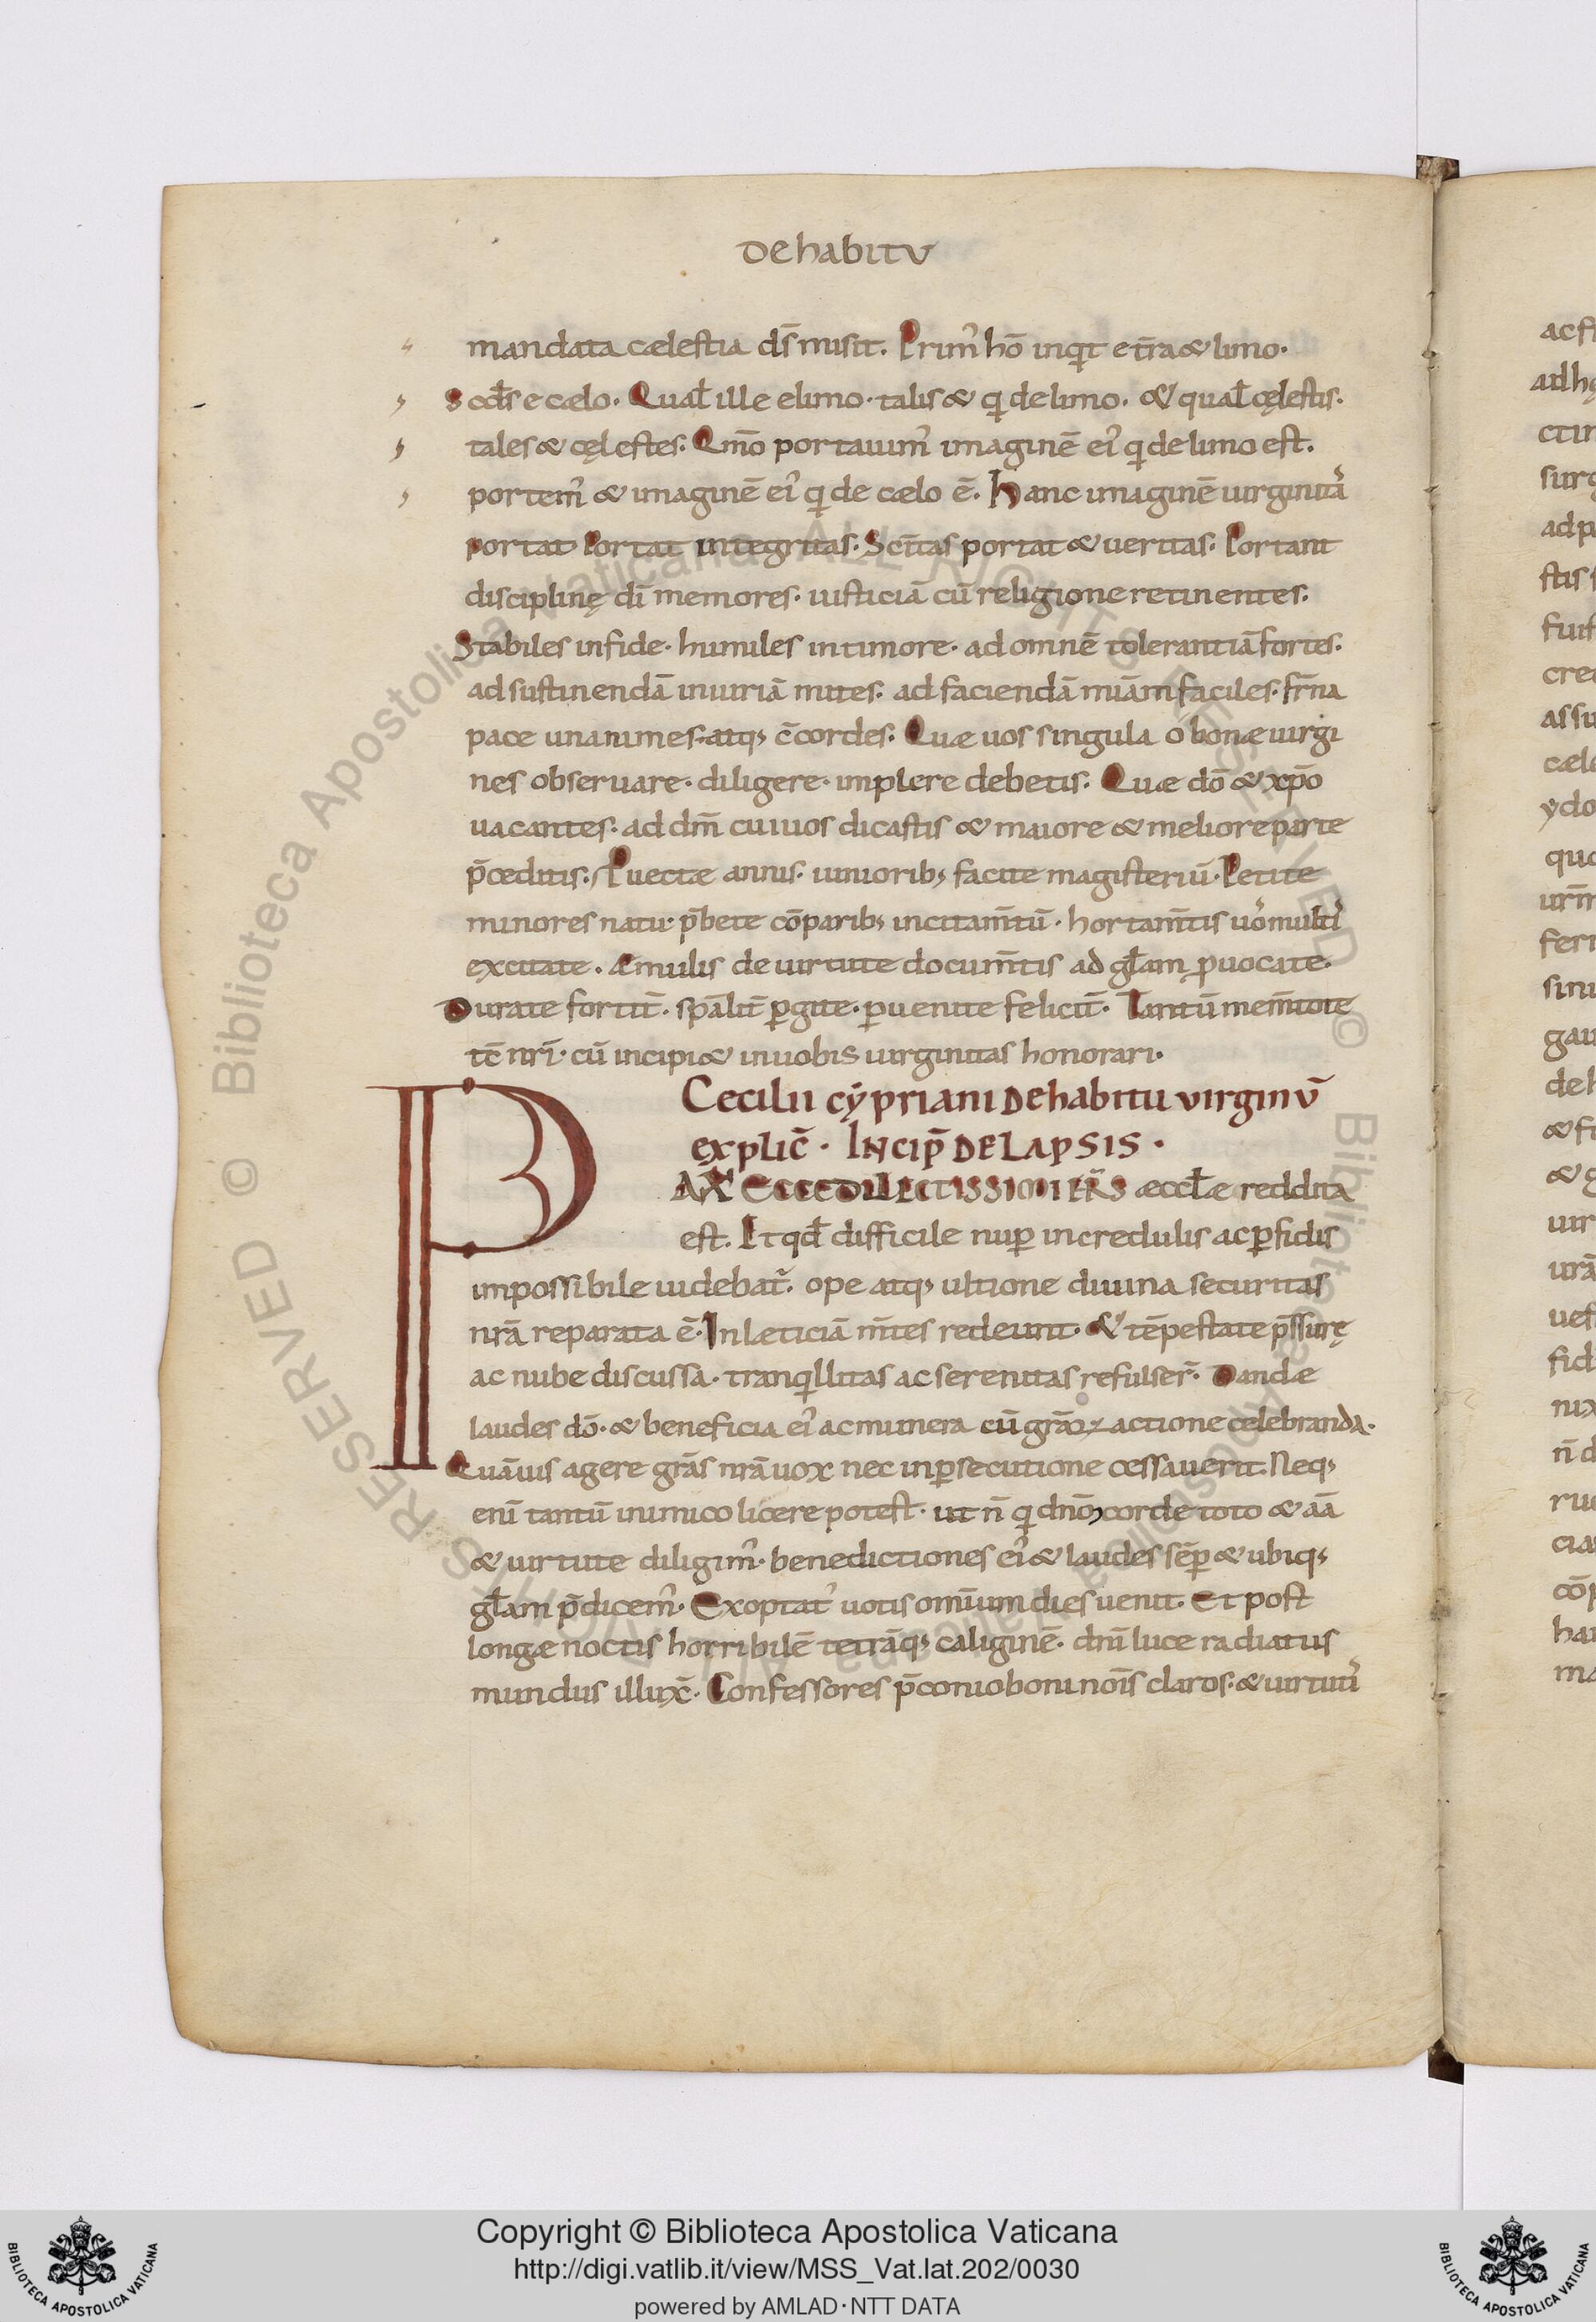 De habitv
mandata cælestia dſ̄ misit. Prim᾿ hō inq̄t e t̄ra & limo·
Scd̄s e cælo. Qual̄ ille e limo· talis & q̄ de limo. & qual̄ cęlestis.
tales & cęlestes. Qm̄o portauim᾿ imaginē ei᾿ q̄ de limo est.
portem᾿ & imaginē ei᾿ q̄ de cælo ē. Hanc imaginē uirginita᾿
portat Portat integritas. Scītas portat & ueritas. Portant
disciplinę dī memores. iusticiā cū religione retinentes.
Stabiles in fide. humiles in timore. ad omnē tolerantiā fortes.
ad sustinendā iniuriā mites. ad faciendā mīām faciles. fr̄na
pace unanimes. atq; c̄cordes. Quæ uos singula o bonæ uirgi
nes obseruare. diligere. implere debetis. Quæ dō & xp̄o
uacantes. ad dm̄ cui uos dicastis & maiore & meliore parte
p̄ceditis. Puectæ annis. iuniorib; facite magisteriū. Petite
minores natu. p̄bete cōparib; incitam̄tū. hortam̄tis uo᾿ multi᾿
excitate. Æmulis de uirtute docum̄tis ad gl̄am ꝓuocate.
Durate fortit̄. sp̄alit̄ p̱gite. p̱uenite felicit̄. Tantū mem̄tote
tē nr̄i. cū incipi& in uobis uirginitas honorari.
Cecilii cypriani De habitu virginv̄
explic̄. INcip̄ DE LAPSIS.
PAX ECCE DILECTISSIMI FR̄S æccl̄æ reddita
est. Et qd̄ difficile nup̱ incredulis ac p̱fidis
impossibile uidebat᾿. ope atq; ultione diuina securitas
nrā reparata ē. In læticiā m̄tes redeunt. & tēpestate p̄ssurę
ac nube discussa. tranq̄llitas ac serenitas refulser̄. Dandæ
laudes dō. & beneficia ei᾿ ac munera cū grāꝝ actione celebranda.
Quāuis agere grās nrā uox nec in p̱secutione cessauerit. Neq;
enī tantū inimico licere potest. ut n̄ q̄ dnm̄ corde toto & aīa
& uirtute diligim᾿. benedictiones ei᾿ & laudes sēp̱ & ubiq;
gl̄am p̄dicem᾿. Exoptat᾿ uotis omīum dies uenit. Et post
longæ noctis horribilē tetrāq; caliginē. dnī luce radiatus
mundus illuxc̄. Confessores p̄conio boni noīs claros. & uirtuti᾿
Copyright © Biblioteca Apostolica Vaticana
http://digi.vatlib.it/view/MSS_Vat.lat.202/0030
powered by AMLAD·NTT DATA